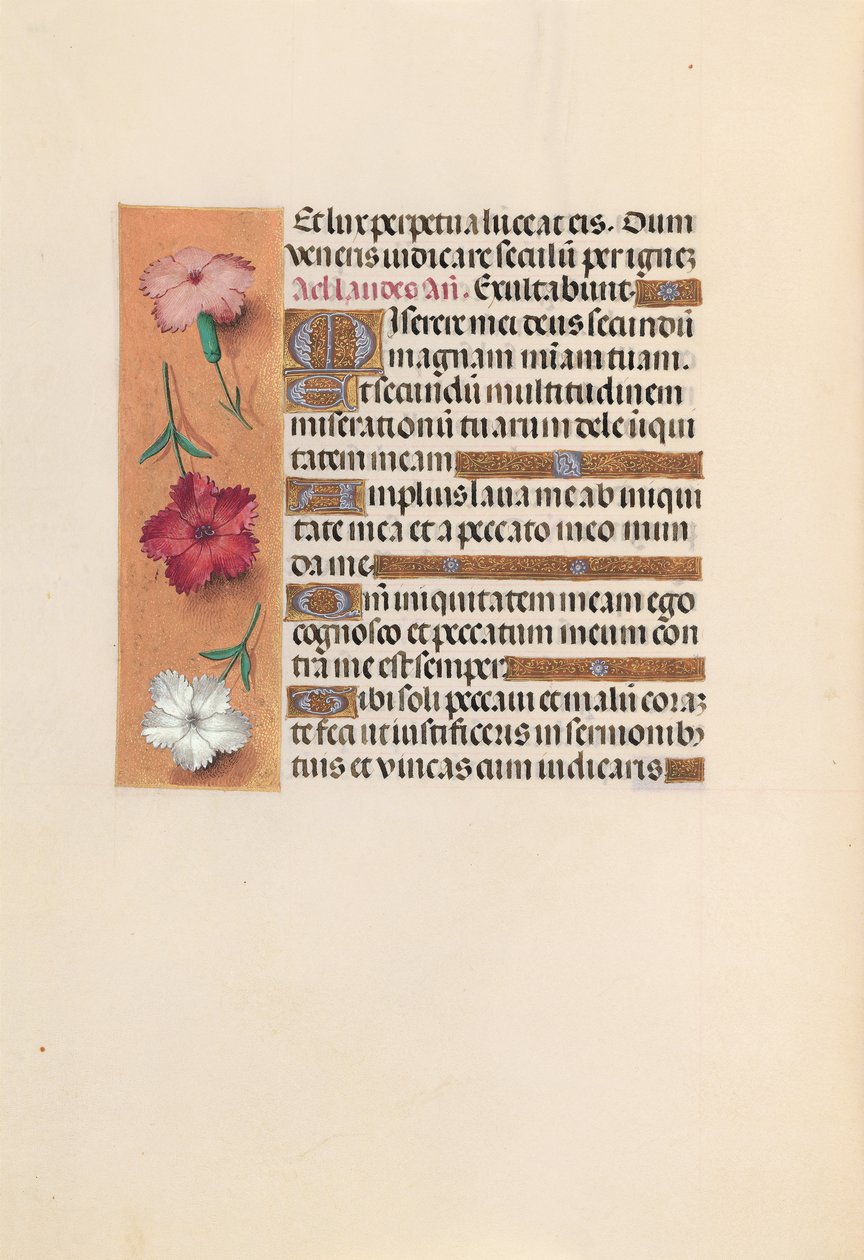 Et lux perpetua luceat eis. Dum
veneris iudicare seculū per ignez
Ad laudes Añ. Exultabunt
Miserere mei deus secundū
magnam mīam tuam.
Et secundū multitudinem
miserationū tuarum dele iniqui
tatem meam
Amplius laua me ab iniqui
tate mea et a peccato meo mun
da me
Qm̄ iniquitatem meam ego
cognosco et peccatum meum con
tra me est semper
Tibi soli peccaui et malū coraz
te feci ut iustificeris in sermonibꝫ
tuis et vincas cum iudicaris